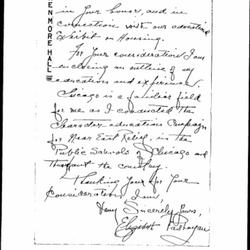 in your honor, and in
connection with our educational
Exhibit on Housing.
For your consideration I am
enclosing an outline of my
education and experience.
Chicago is a familiar field
for me as I conducted the
Character education Campaign
for Near East Relief, in the
Public Schools of Chicago and
throughout the country.
Thanking you for your
consideration I am,
Very Sincerely yours,
Elizabeth
ENMORE HALL